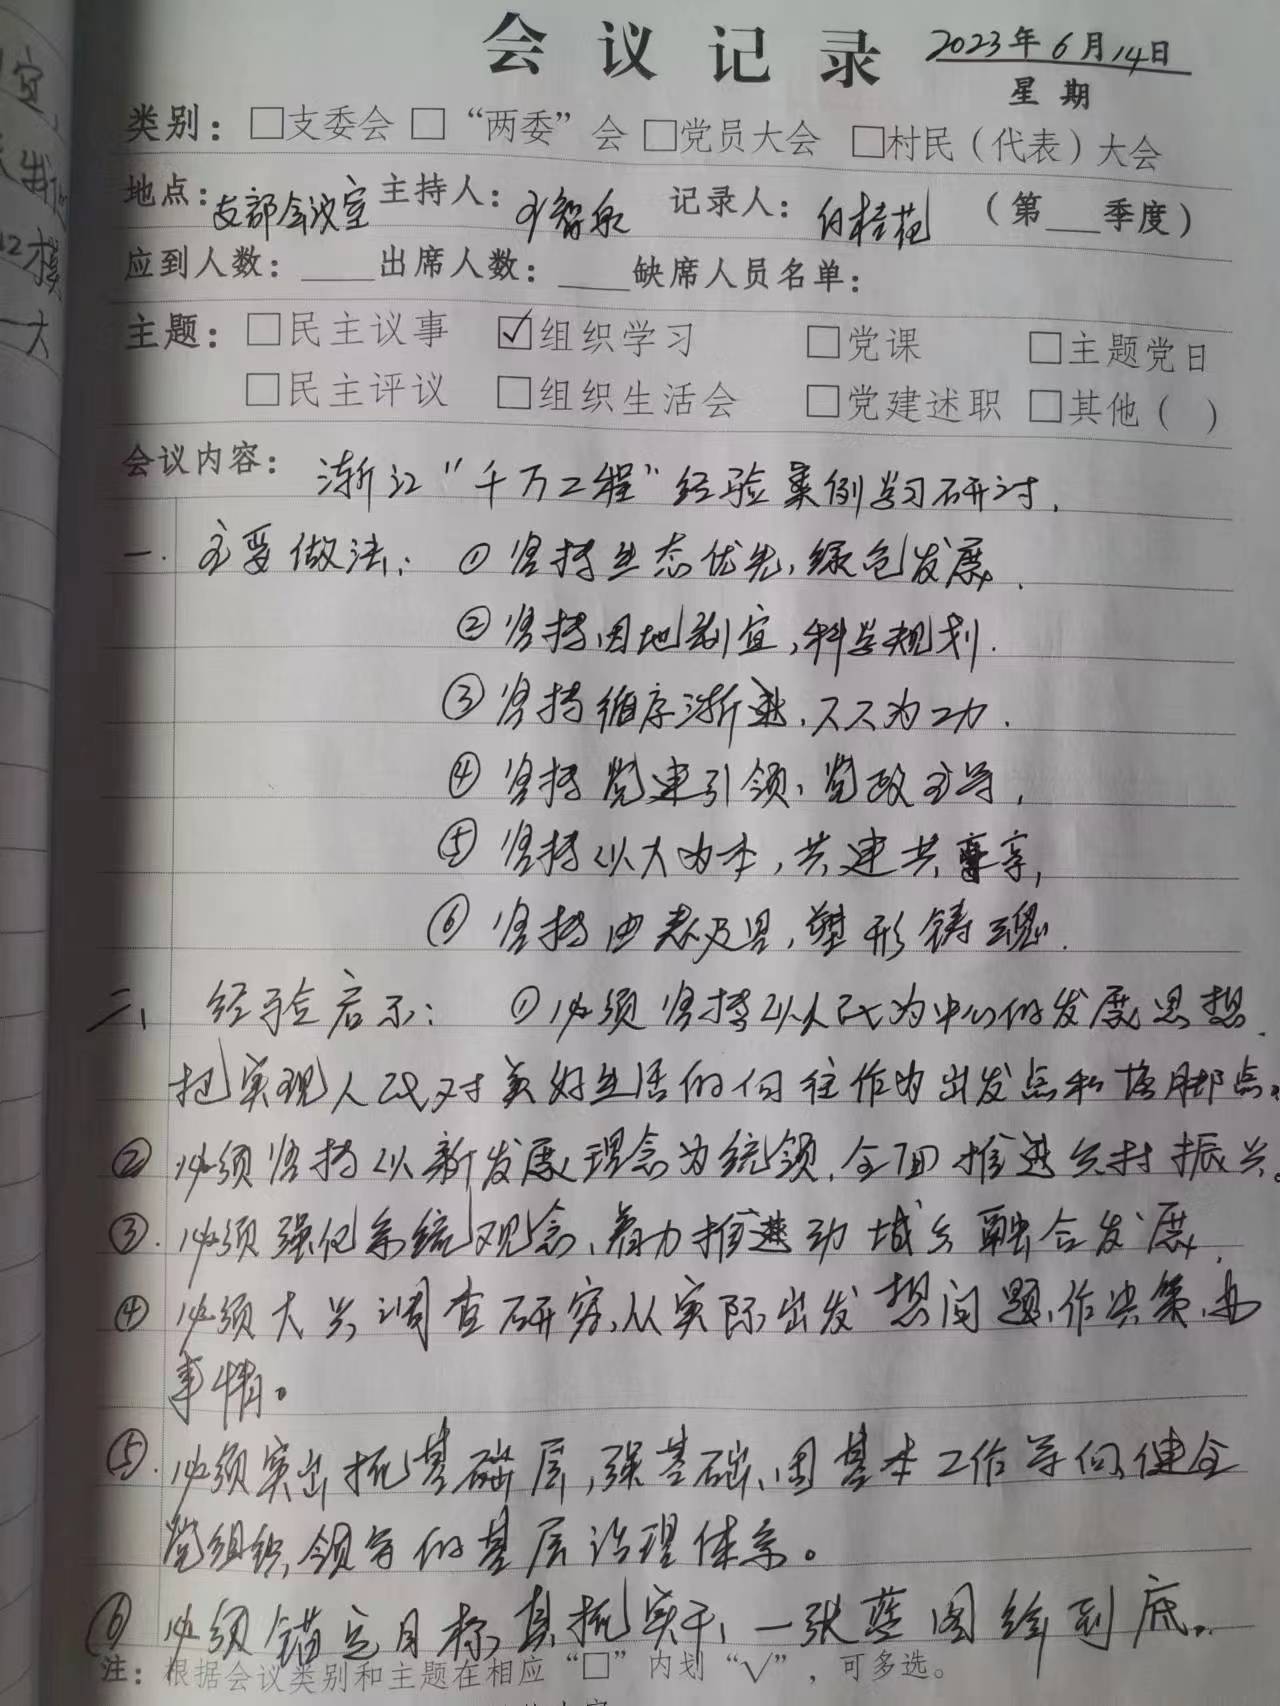 会议记录 2023年6月14日
星期
类别：□支委会 □“两委”会 □党员大会 □村民（代表）大会
地点：支部会议室 主持人： 记录人：白桂花 （第___季度）
应到人数：____出席人数：____缺席人员名单：
主题：□民主议事 ☑组织学习 □党课 □主题党日
□民主评议 □组织生活会 □党建述职 □其他（ ）
会议内容：浙江“千万工程”经验案例学习研讨.
一.主要做法：①坚持生态优先,绿色发展.
②坚持因地制宜,科学规划.
③坚持循序渐进,久久为功.
④坚持党建引领,党政主导,
⑤坚持以人为本,共建共享,
⑥坚持由表及里,塑形铸魂.
二、经验启示：①必须坚持以人民为中心的发展思想.
把实现人民对美好生活的向往作为出发点和落脚点.
②必须坚持以新发展理念为统领,全面推进乡村振兴。
③.必须强化系统观念、着力推动城乡融合发展.
④必须大兴调查研究,从实际出发想问题、作决策、办
事情。
⑤.必须突出抓基础层,强基础、固基本工作导向,健全
党组织领导的基层治理体系。
⑥必须锚定目标真抓实干、一张蓝图绘到底。
注：根据会议类别和主题在相应“□”内划“√”，可多选。
大